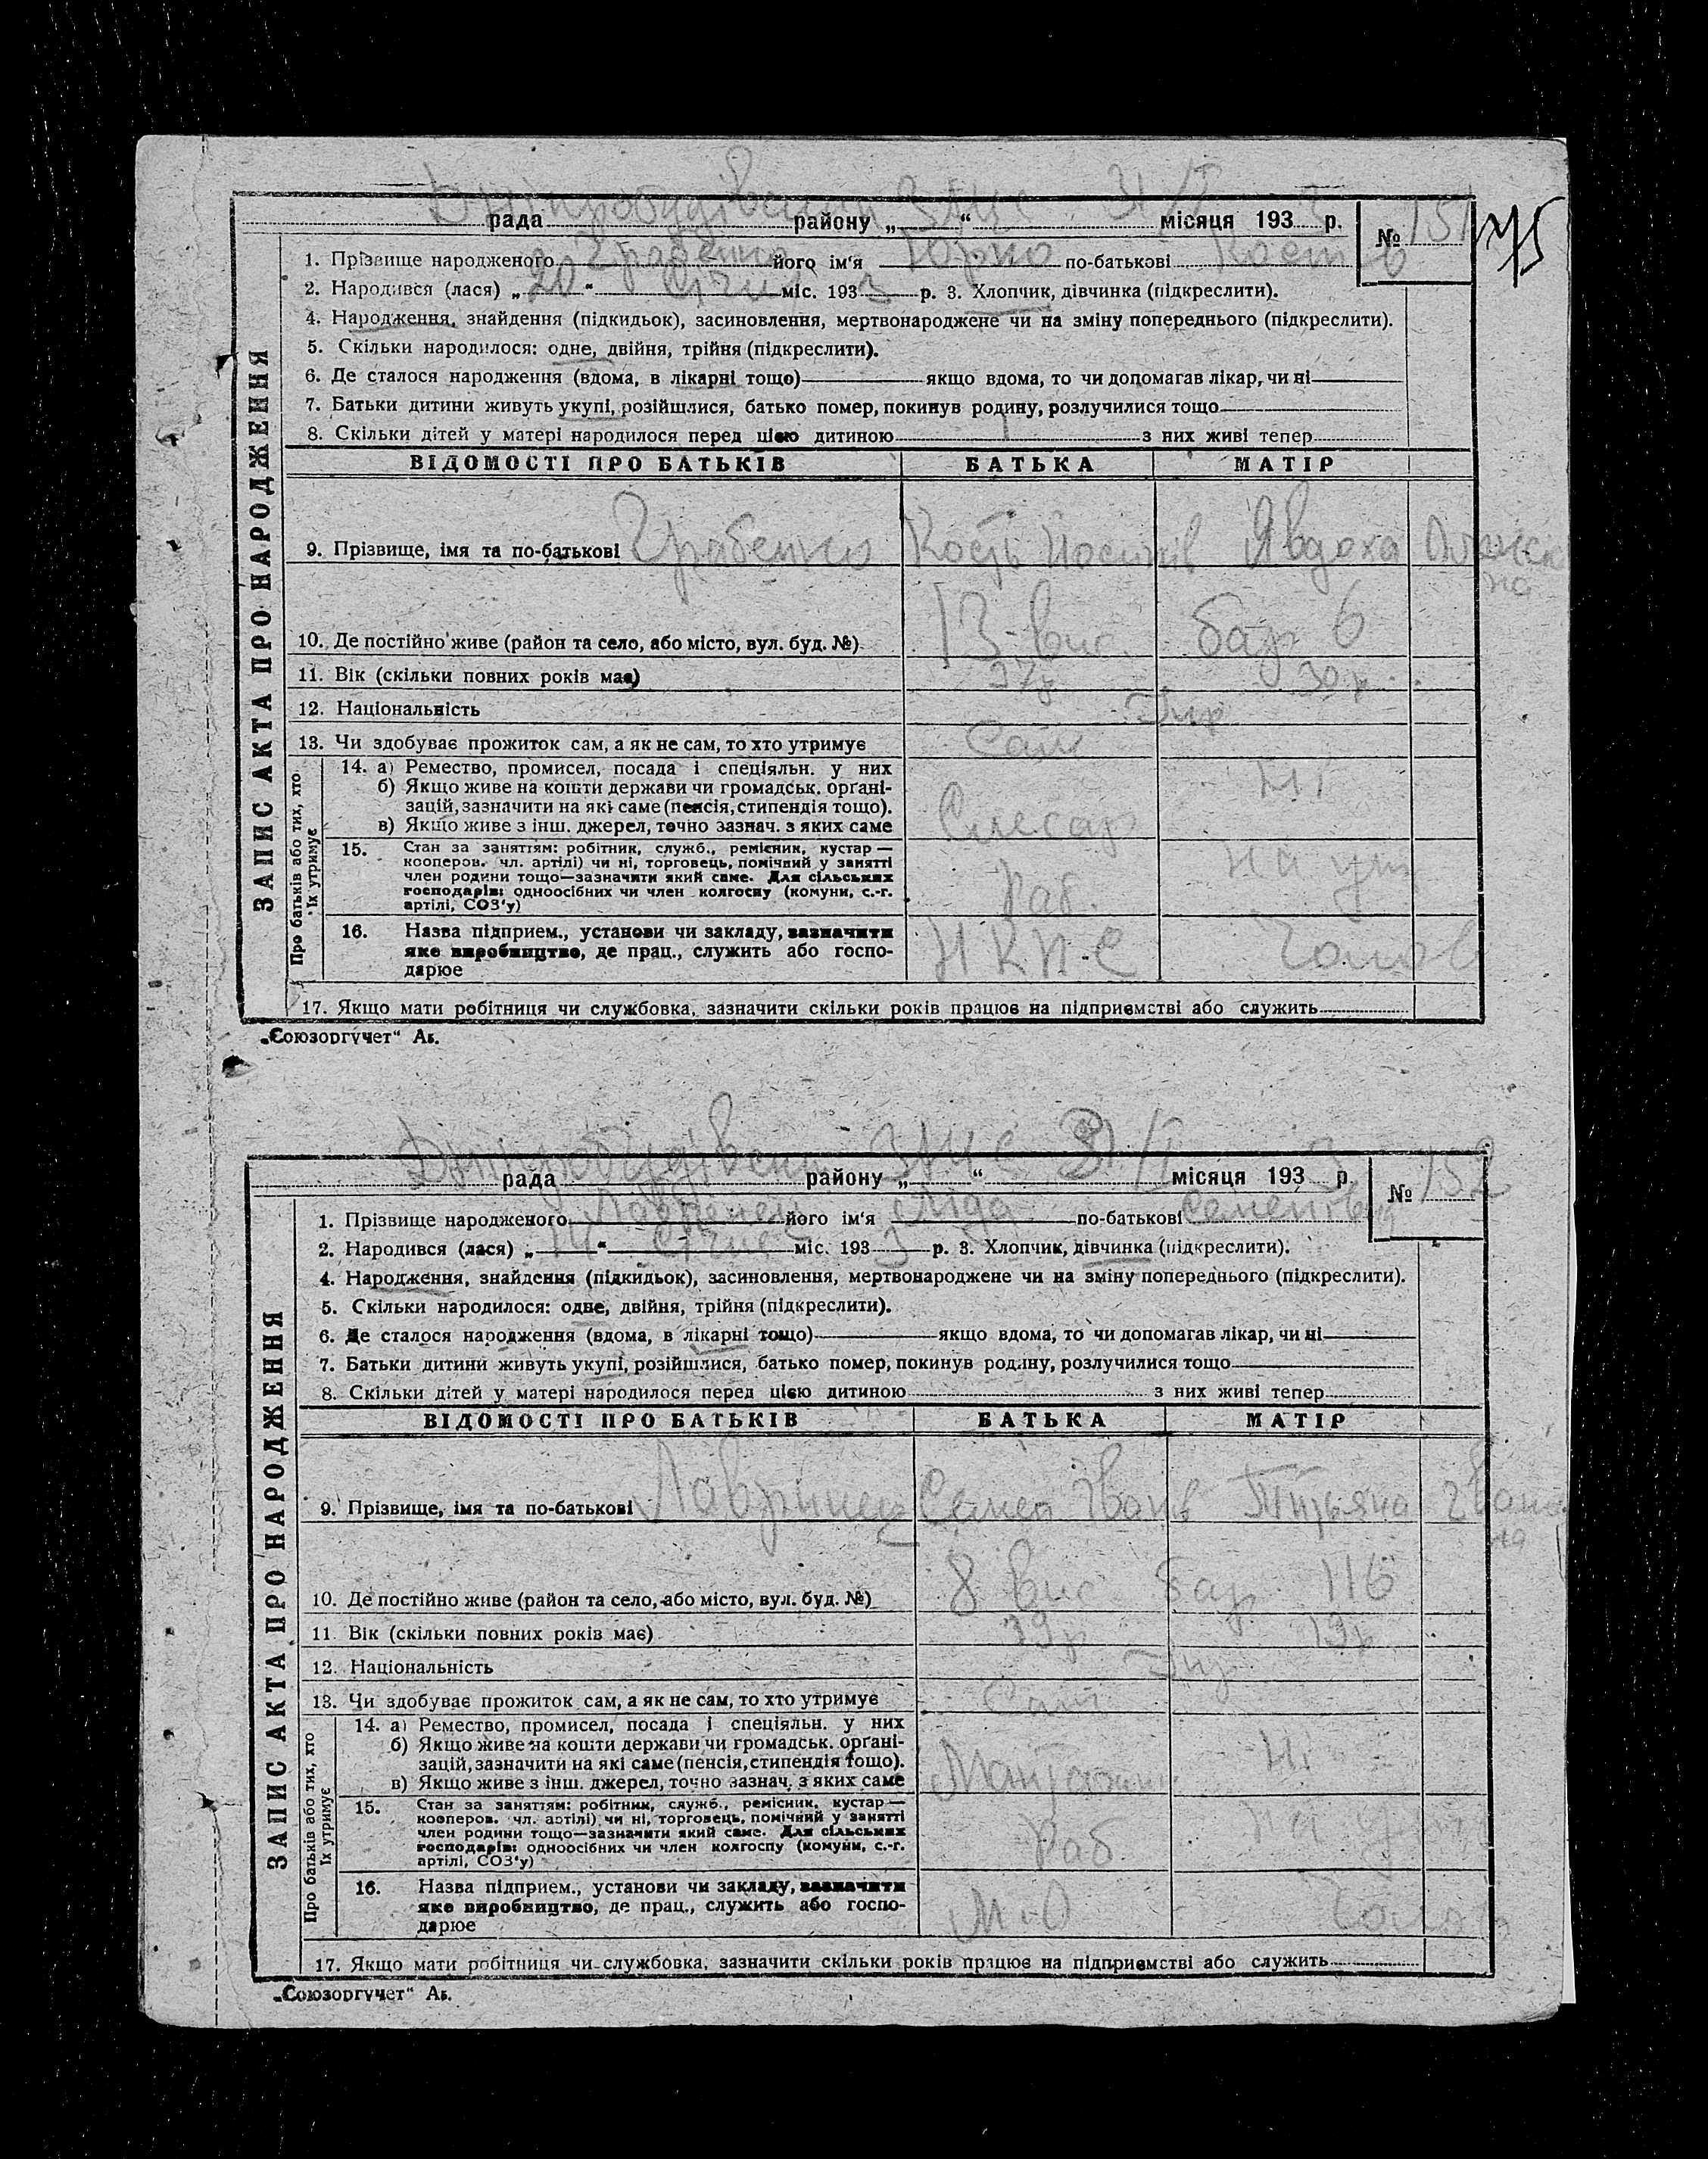 Дніпробудівський ЗАГС 31/I 3
рада району „ “ місяця 193 р. № 151 75
1. Прізвище народженого Грабенко його ім'я Юрко по-батькові Кост ів
2. Народився (лася) „ 20 “ Січня міс. 193 3 р. 3. Хлопчик, дівчинка (підкреслити).
4. Народження, знайдення (підкидьок), засиновлення, мертвонароджене чи на зміну попереднього (підкреслити).
5. Скільки народилося: одне, двійня, трійня (підкреслити).
6. Де сталося народження (вдома, в лікарні тощо) якщо вдома, то чи допомагав лікар, чи ні
7. Батьки дитини живуть укупі, розійшлися, батько помер, покинув родину, розлучилися тощо
8. Скільки дітей у матері народилося перед цією дитиною 1 з них живі тепер
ЗАПИС АКТА ПРО НАРОДЖЕННЯ
ВІДОМОСТІ ПРО БАТЬКІВ БАТЬКА МАТІР
9. Прізвище, імя та по-батькові Грабенко Кость Йосипів Явдоха
на
10. Де постійно живе (район та село, або місто, вул. буд. №) 13 вис бар 6
11. Вік (скільки повних років має) 37р 30 р
12. Національність Укр
13. Чи здобуває прожиток сам, а як не сам, то хто утримує Сам
Про батьків або тих, хто їх утримує
14. а) Ремество, промисел, посада і спеціяльн. у них Ні
б) Якщо живе на кошти держави чи громадськ. органі-
зацій, зазначити на які саме (пенсія, стипендія тощо).
в) Якщо живе з інш. джерел, точно зазнач. з яких саме Слесар
15. Стан за заняттям: робітник, служб., ремісник, кустар—
кооперов. чл. артілі) чи ні, торговець, помічний у занятті
член родини тощо—зазначити який саме. Для сільських
господарів: одноосібних чи член колгоспу (комуни, с.-г.
артілі, СОЗ'у) Раб. На ут
16. Назва підприєм., установи чи закладу, зазначити
яке виробництво, де прац., служить або госпо-
дарює НКПС Чолов
17. Якщо мати робітниця чи службовка, зазначити скільки років працює на підприємстві або служить
„Союзоргучет“ Аг.
Дніпробудівськ ЗАГС 31/I 3
рада району „ “ місяця 193 р. № 152
1. Прізвище народженого Лавринец його ім'я Ліда по-батькові Семенівна
2. Народився (лася) „ “ Січня міс. 193 3 р. 3. Хлопчик, дівчинка (підкреслити).
4. Народження, знайдення (підкидьок), засиновлення, мертвонароджене чи на зміну попереднього (підкреслити).
5. Скільки народилося: одне, двійня, трійня (підкреслити).
6. Де сталося народження (вдома, в лікарні тощо) якщо вдома, то чи допомагав лікар, чи ні
7. Батьки дитини живуть укупі, розійшлися, батько помер, покинув родину, розлучилися тощо
8. Скільки дітей у матері народилося перед цією дитиною з них живі тепер
ЗАПИС АКТА ПРО НАРОДЖЕННЯ
ВІДОМОСТІ ПРО БАТЬКІВ БАТЬКА МАТІР
9. Прізвище, імя та по-батькові Лавринец Семен Іванів Тит'яна Івані
на
10. Де постійно живе (район та село, або місто, вул. буд. №) 8 вис бар 116
11. Вік (скільки повних років має) 19р
12. Національність Укр
13. Чи здобуває прожиток сам, а як не сам, то хто утримує Сам
Про батьків або тих, хто їх утримує
14. а) Ремество, промисел, посада і спеціяльн. у них
б) Якщо живе на кошти держави чи громадськ. органі- Ні
зацій, зазначити на які саме (пенсія, стипендія тощо).
в) Якщо живе з інш. джерел, точно зазнач. з яких саме
15. Стан за заняттям: робітник, служб., ремісник, кустар—
кооперов. чл. артілі) чи ні, торговець, помічний у занятті
член родини тощо—зазначити який саме. Для сільських
господарів: одноосібних чи член колгоспу (комуни, с.-г.
артілі, СОЗ'у) Раб. На ут
16. Назва підприєм., установи чи закладу, зазначити
яке виробництво, де прац., служить або госпо-
дарює М.О Чолов
17. Якщо мати робітниця чи службовка, зазначити скільки років працює на підприємстві або служить
„Союзоргучет“ Аг.